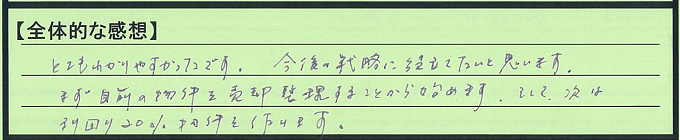 【全体的な感想】
とてもわかりやすかったです。今後の戦略に役立てたいと思います。
まず目前の物件を売却整理することから始めます。そして、次は
利回り20%物件を作ります。